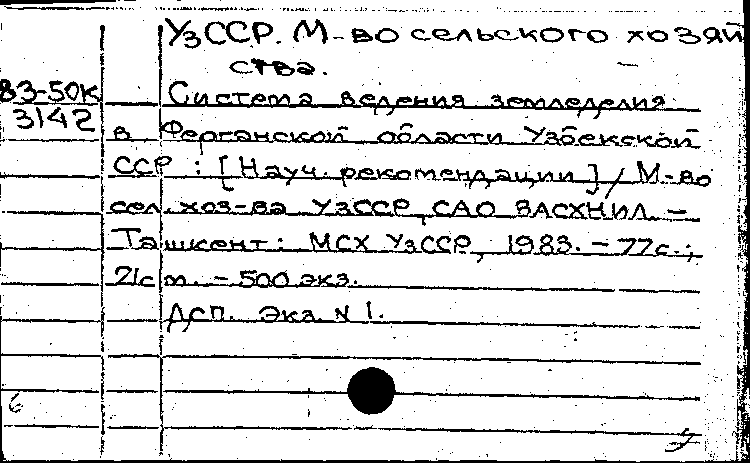 УзССР. М-во сельского хозяй
ства.
83-50К
3142
Система ведения земледелия
в Ферганской области Узбекской
ССР : [Науч. рекомендации] / М-во
сел. хоз-ва УзССР, САО ВАСХНИЛ. –
Ташкент : МСХ УзССР, 1983. – 77с. ;
21см. – 500 экз.
Дсп. Экз. N 1.
6